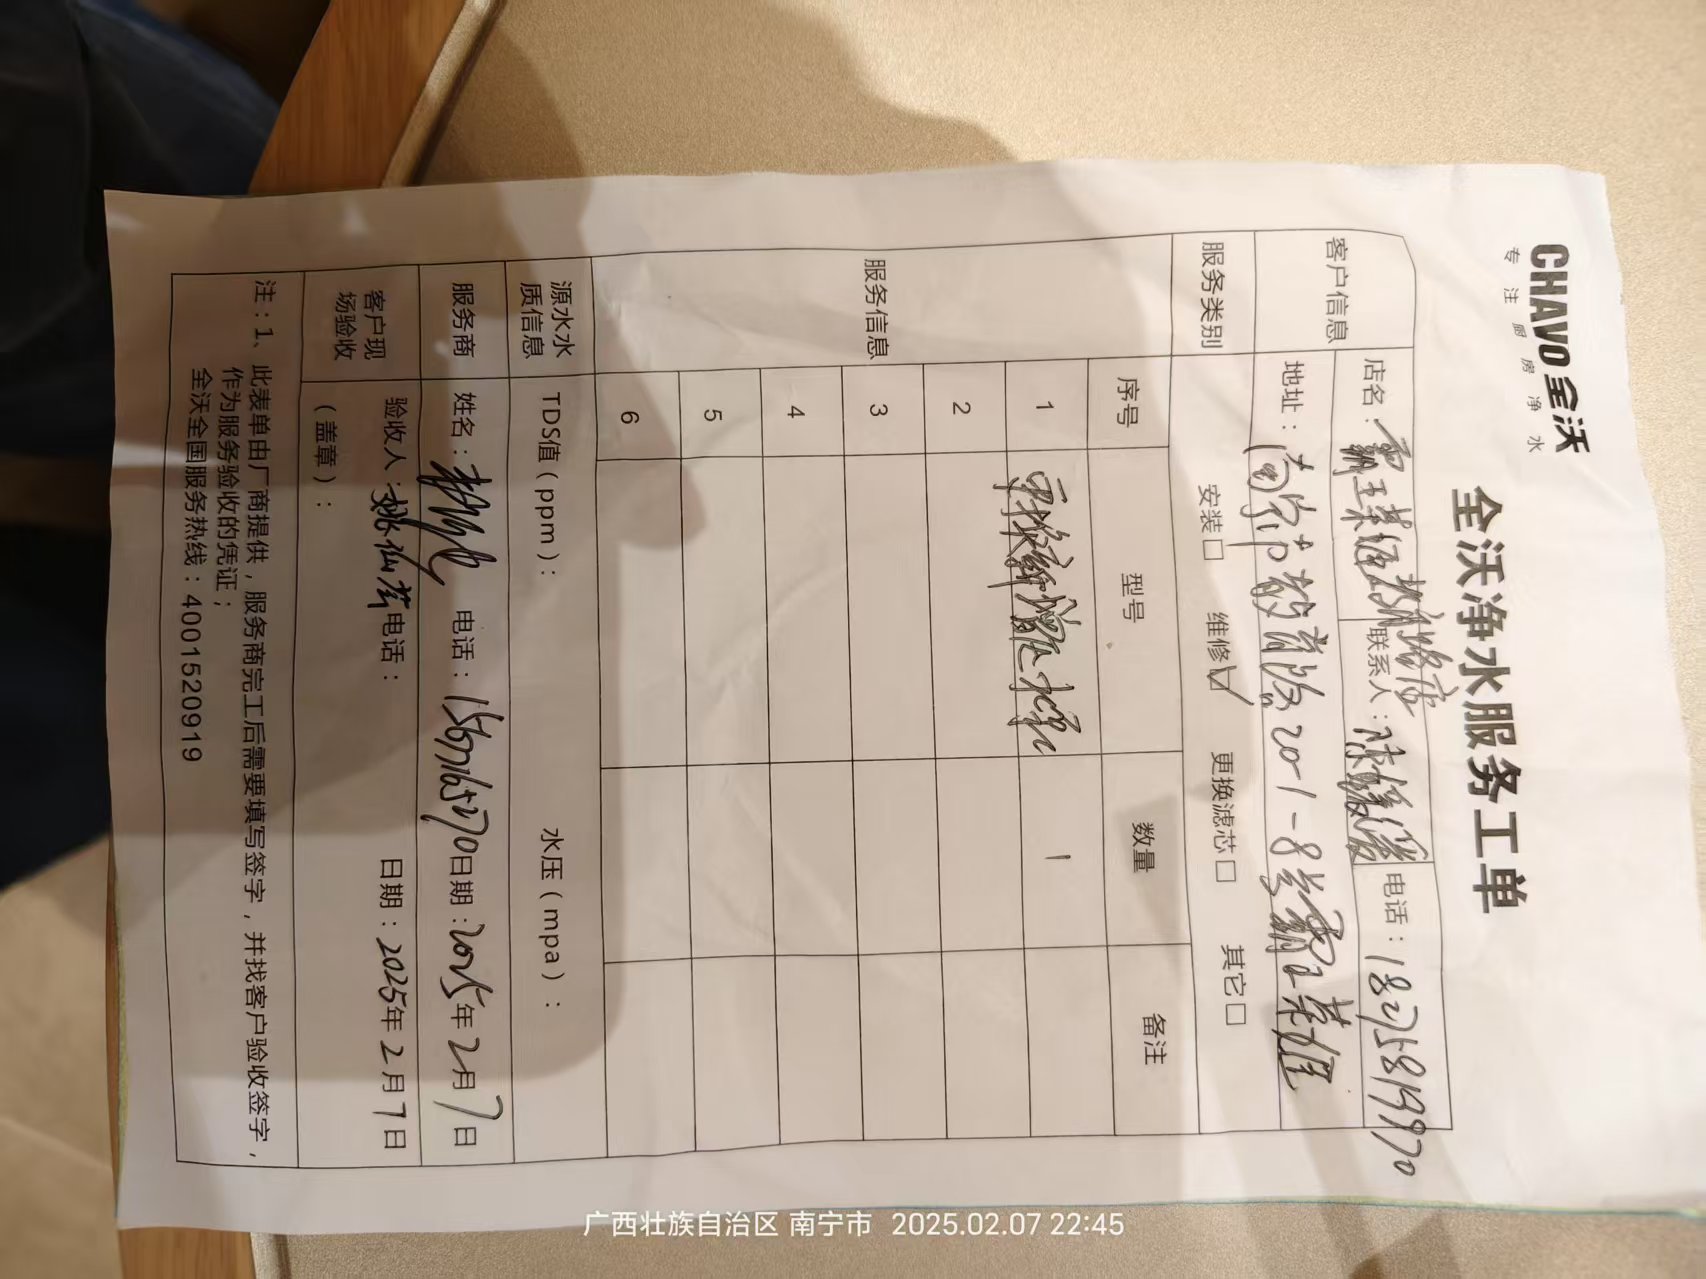 CHAVO 全沃
专注厨房净水
全沃净水服务工单
客户信息
店名： 联系人： 电话：18275819970
地址： 201-8
服务类别 安装□ 维修☑ 更换滤芯□ 其它□
服务信息
序号 型号 数量 备注
1 更换新增压水泵 1
2
3
4
5
6
源水水质信息 TDS值（ppm）： 水压（mpa）：
服务商 姓名： 电话： 日期：2025年2月7日
客户现场验收 验收人： 电话： 日期：2025年2月7日
（盖章）：
注：1、此表单由厂商提供，服务商完工后需要填写签字，并找客户验收签字，
作为服务验收的凭证；
全沃全国服务热线：4001520919
广西壮族自治区 南宁市 2025.02.07 22:45